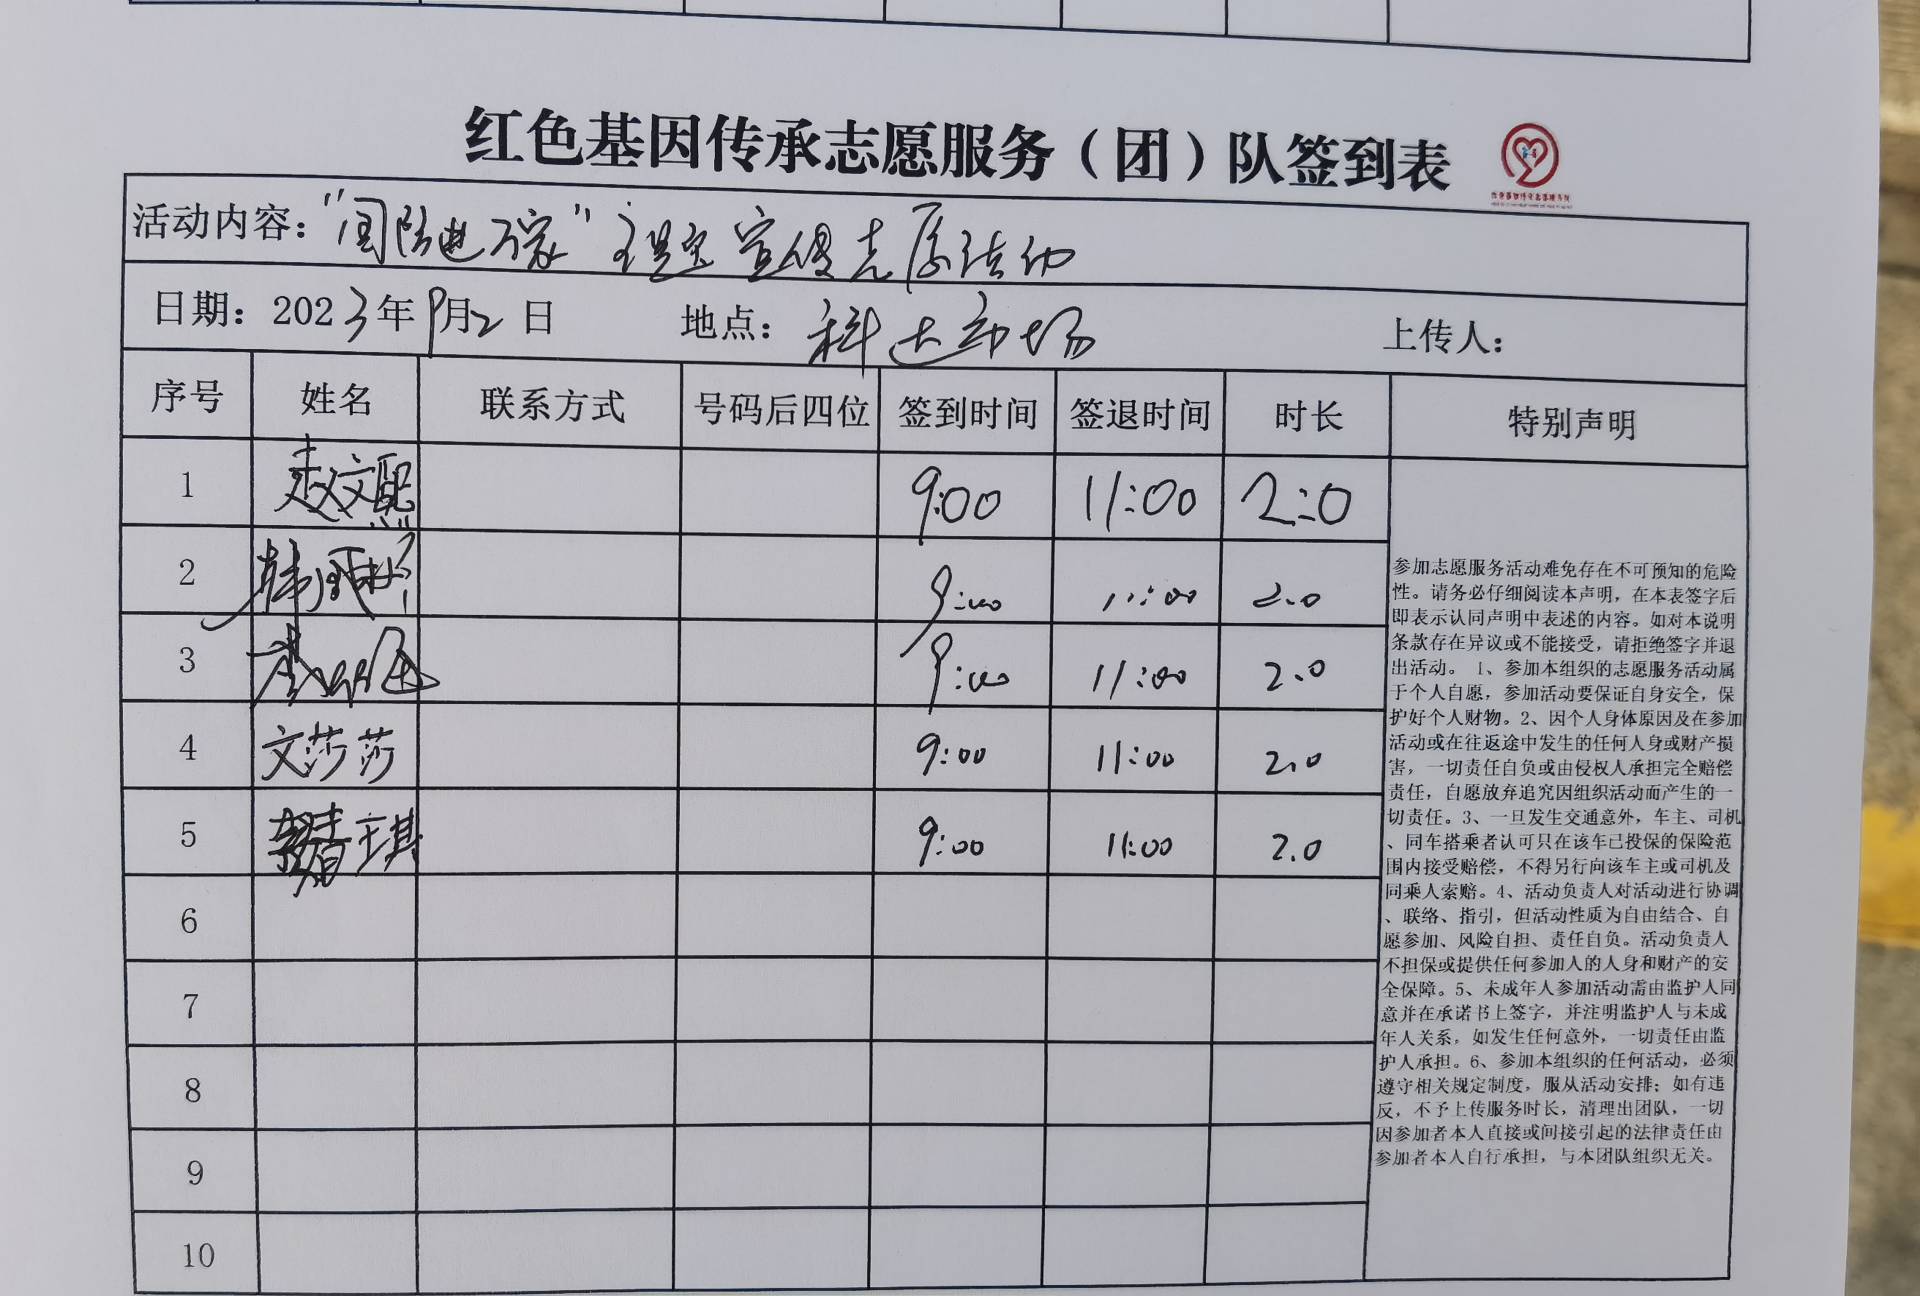 红色基因传承志愿服务（团）队签到表
活动内容："国防进万家"主题宣传志愿活动
日期：2023年9月2日 地点：科大市场 上传人：
序号 姓名 联系方式 号码后四位 签到时间 签退时间 时长 特别声明
1 赵文熙 9:00 11:00 2:0
2 韩 9:00 11:00 2.0
3 9:00 11:00 2.0
4 文莎莎 9:00 11:00 2.0
5 王琪 9:00 11:00 2.0
6
7
8
9
10
参加志愿服务活动难免存在不可预知的危险
性。请务必仔细阅读本声明，在本表签字后
即表示认同声明中表述的内容。如对本说明
条款存在异议或不能接受，请拒绝签字并退
出活动。 1、参加本组织的志愿服务活动属
于个人自愿，参加活动要保证自身安全，保
护好个人财物。2、因个人身体原因及在参加
活动或在往返途中发生的任何人身或财产损
害，一切责任自负或由侵权人承担完全赔偿
责任，自愿放弃追究因组织活动而产生的一
切责任。3、一旦发生交通意外，车主、司机
、同车搭乘者认可只在该车已投保的保险范
围内接受赔偿，不得另行向该车主或司机及
同乘人索赔。4、活动负责人对活动进行协调
、联络、指引，但活动性质为自由结合、自
愿参加、风险自担、责任自负。活动负责人
不担保或提供任何参加人的人身和财产的安
全保障。5、未成年人参加活动需由监护人同
意并在承诺书上签字，并注明监护人与未成
年人关系，如发生任何意外，一切责任由监
护人承担。6、参加本组织的任何活动，必须
遵守相关规定制度，服从活动安排；如有违
反，不予上传服务时长，清理出团队，一切
因参加者本人直接或间接引起的法律责任由
参加者本人自行承担，与本团队组织无关。